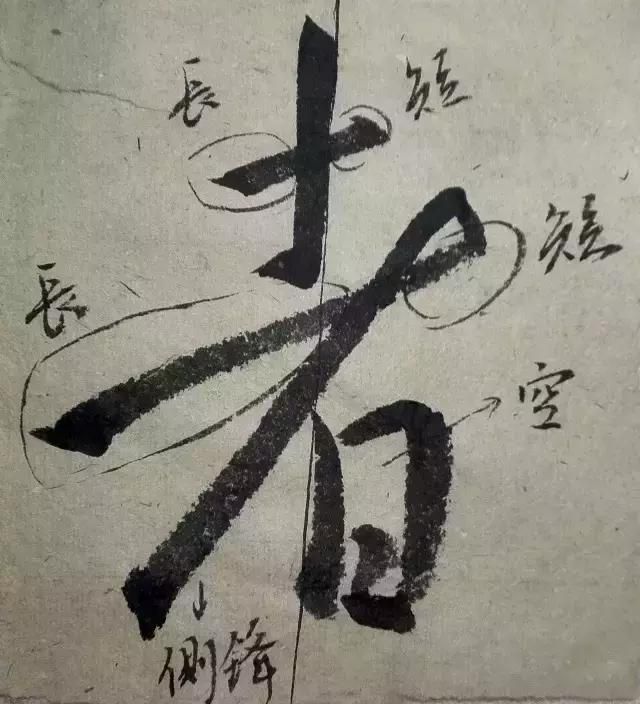 長 短
者
長 短
空
側鋒